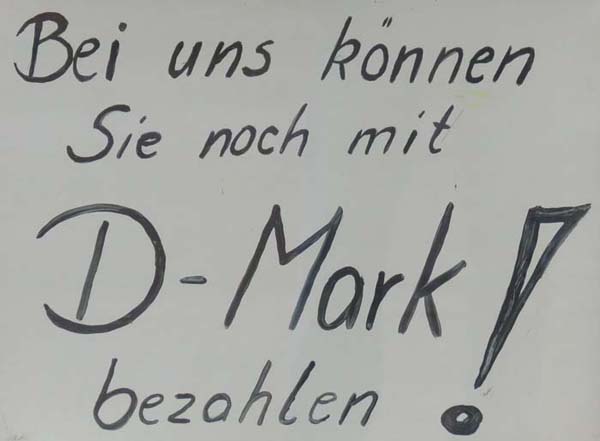 Bei uns können
Sie noch mit
D-Mark!
bezahlen